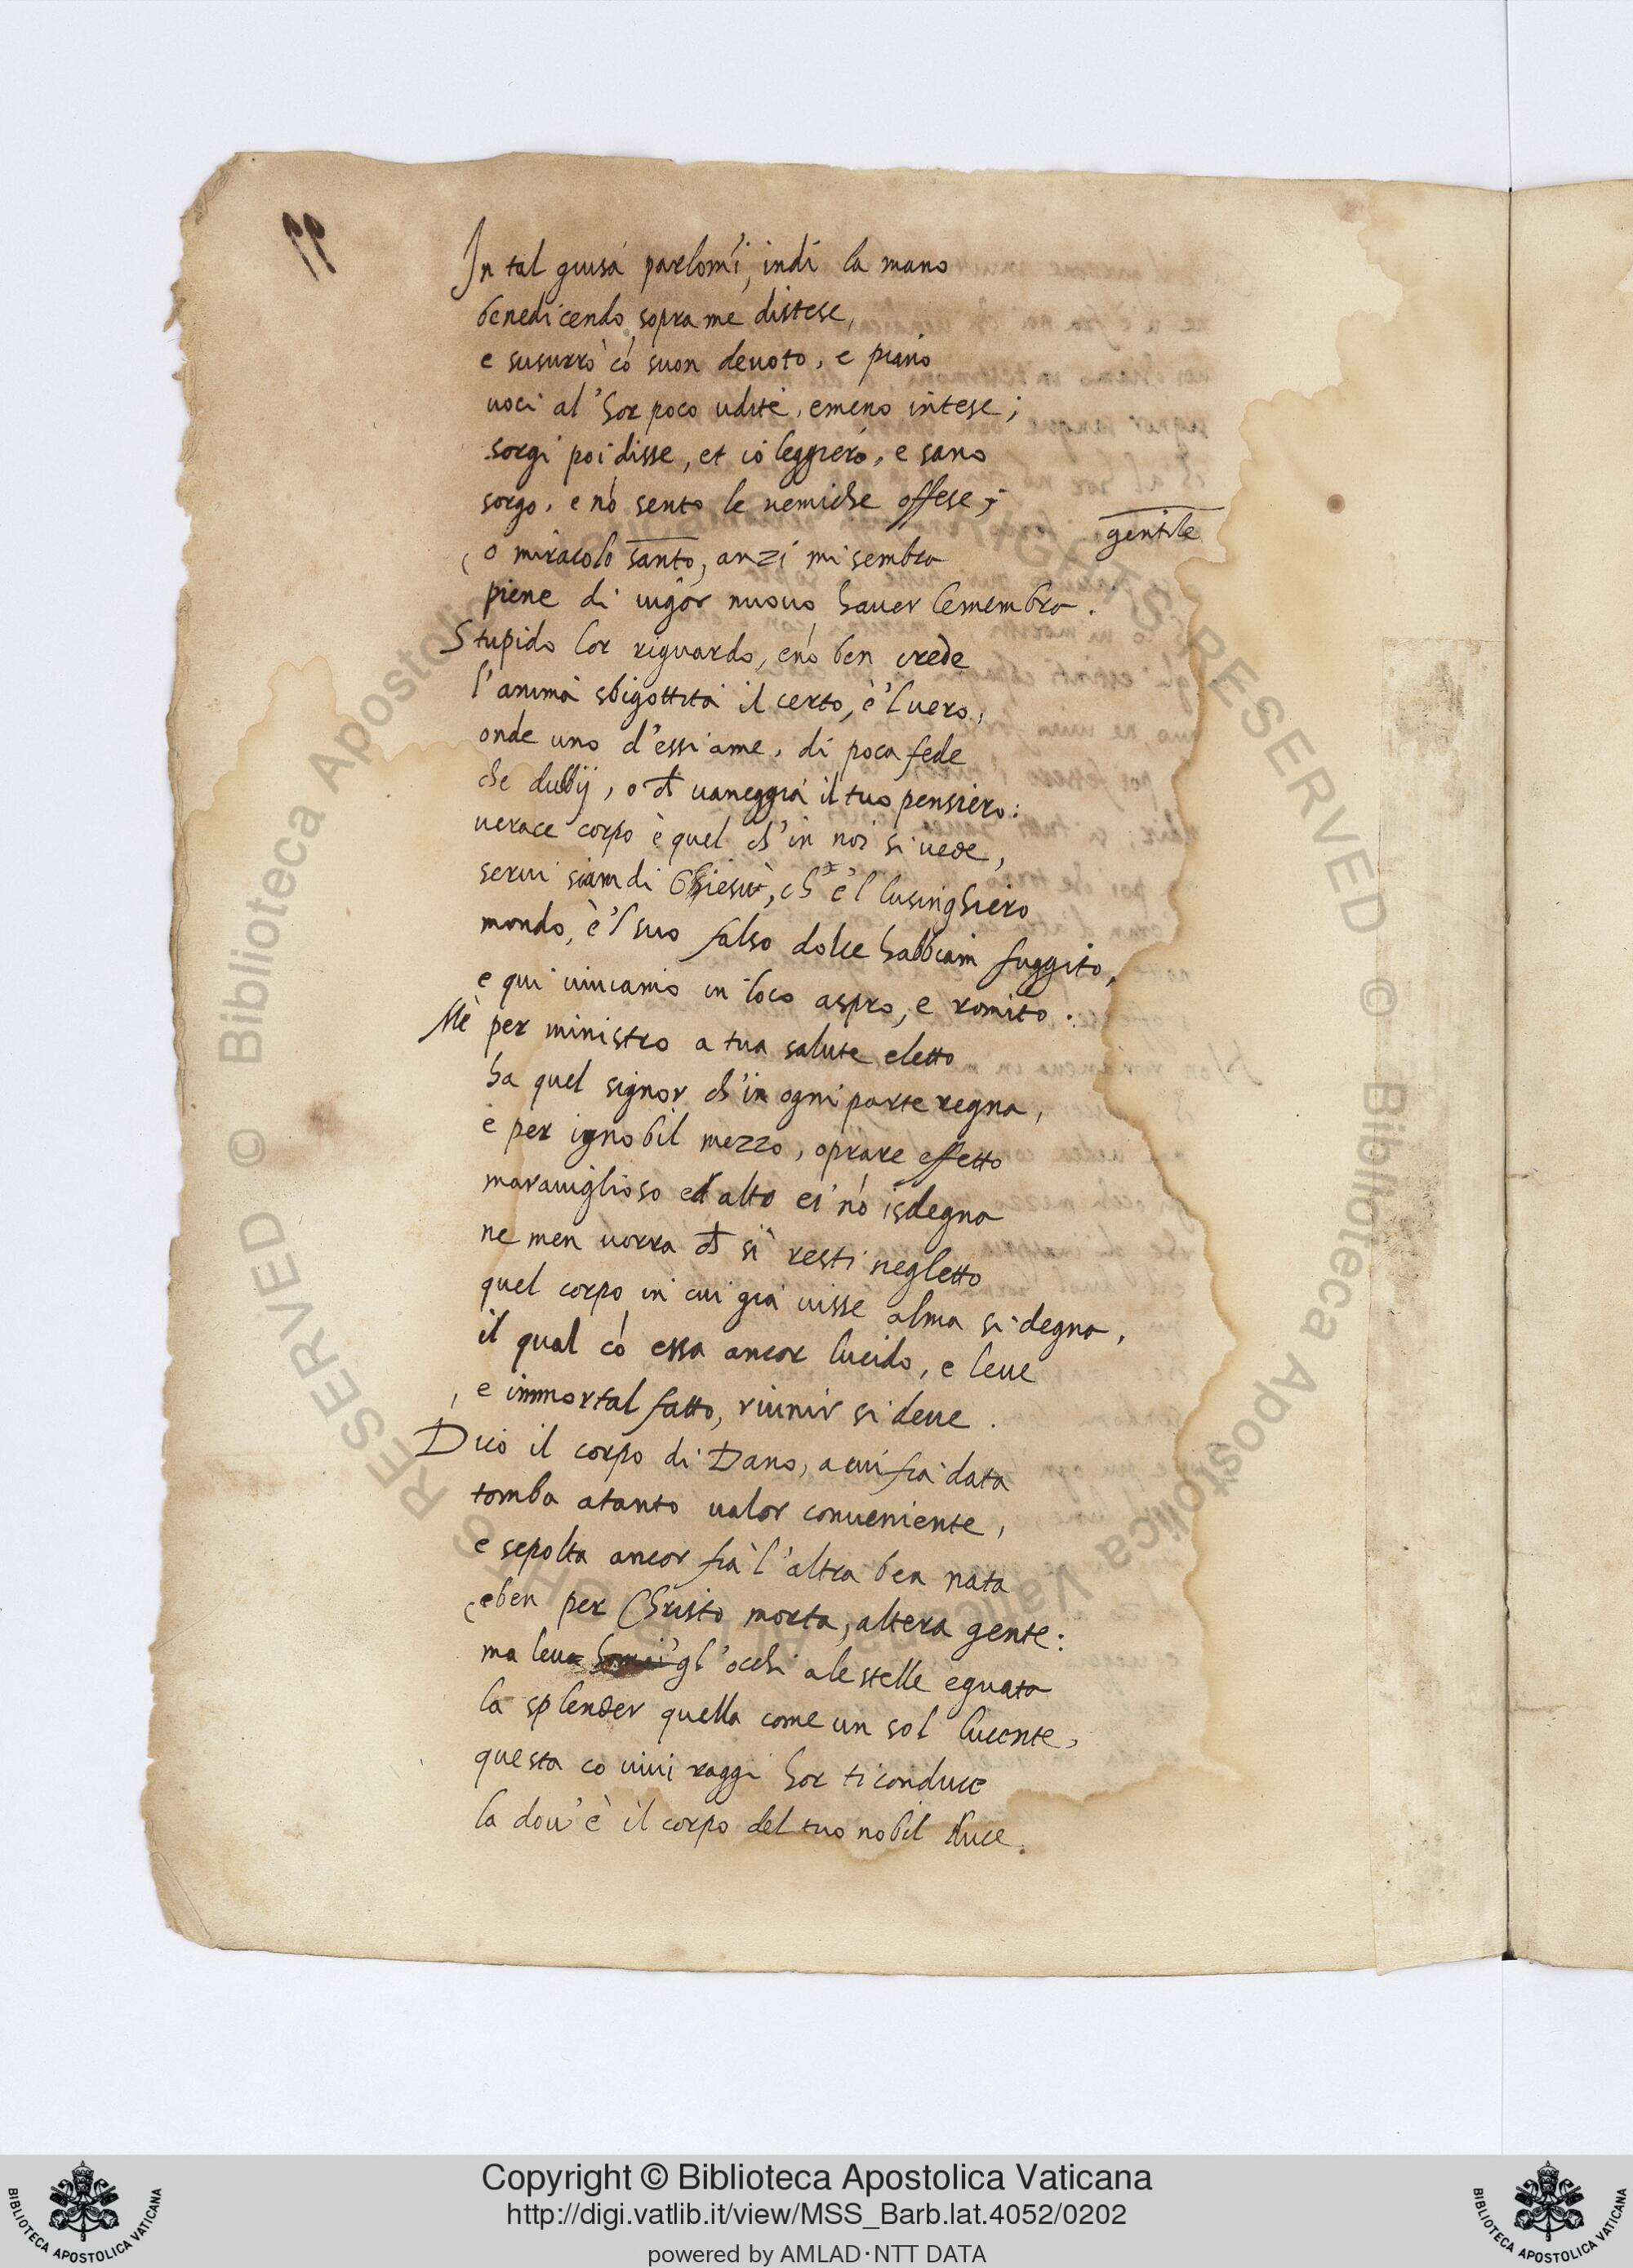 In tal guisa parlomi, indi la mano
benedicendo sopra me distese,
e susurrò cō suon deuoto, e piano
uoci al'hor poco udite, e meno intese;
sorgi poi disse, et io leggiero, e sano
sorgo, e nō sento le nemiche offese;
gentile
o miracolo santo, anzi mi sembra
piene di uigor nuouo hauer le membra.
Stupido lor riguardo, e nō ben crede
l'anima sbigottita il certo, e'l uero,
onde uno d'essi a me, di poca fede
che dubij, o ch uaneggia il tuo pensiero:
uerace corpo è quel ch'in noi si uede,
serui siam di Ghiesù, ch' e'l lusinghiero
mondo, e'l suo falso dolce habbiam fuggito,
e qui uiuiamo in loco aspro, e romito.
Me per ministro a tua salute eletto
ha quel signor ch'in ogni parte regna,
e per ignobil mezzo, oprare effetto
marauiglioso ed alto ei nō isdegna
ne men uorra ch si resti negletto
quel corpo in cui gia uisse alma si degna,
il qual cō essa ancor lucido, e leue
e immortal fatto, riunir si deue.
Dico il corpo di Dano, a cui fia data
tomba a tanto ualor conueniente,
e sepolta ancor fia l'altra ben nata
e ben per Christo morta, altera gente:
ma leua gl'occhi a le stelle e guata
la splender quella come un sol lucente,
questa co uiui raggi hor ti conduce
la dou'è il corpo del tuo nobil duce.
RIGHTS RESERVED © Biblioteca Apostolica Vaticana
Copyright © Biblioteca Apostolica Vaticana
http://digi.vatlib.it/view/MSS_Barb.lat.4052/0202
powered by AMLAD·NTT DATA
BIBLIOTECA APOSTOLICA VATICANA
BIBLIOTECA APOSTOLICA VATICANA